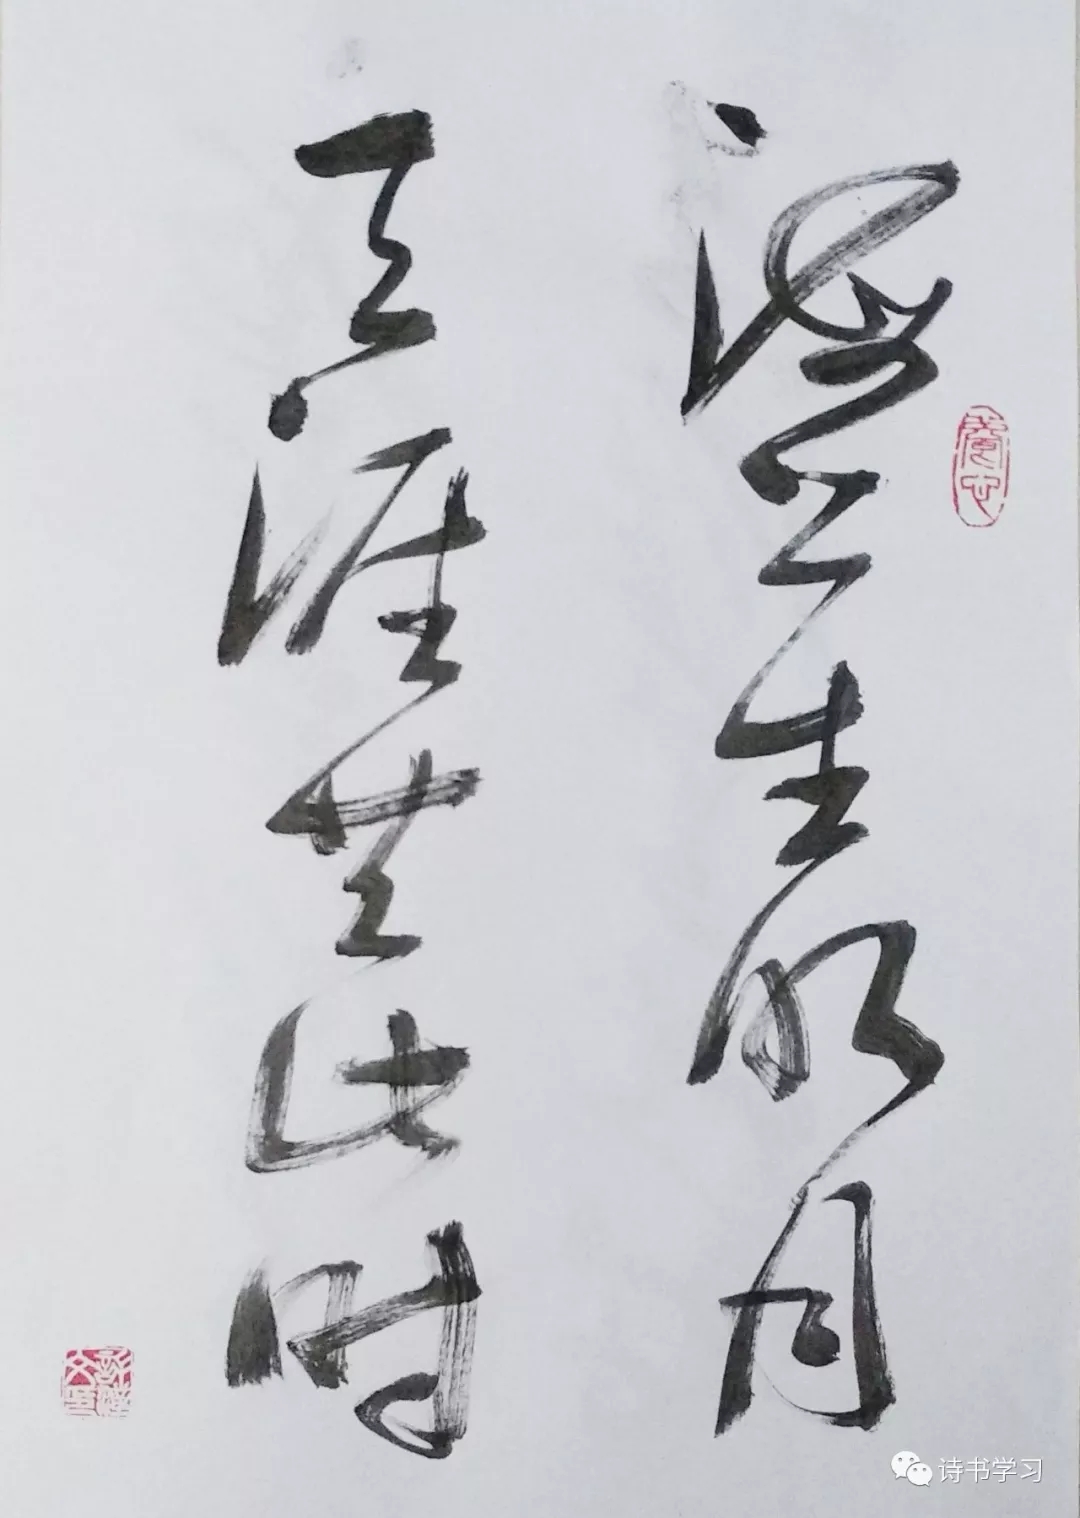 海上生明月
天涯共此时
诗书学习